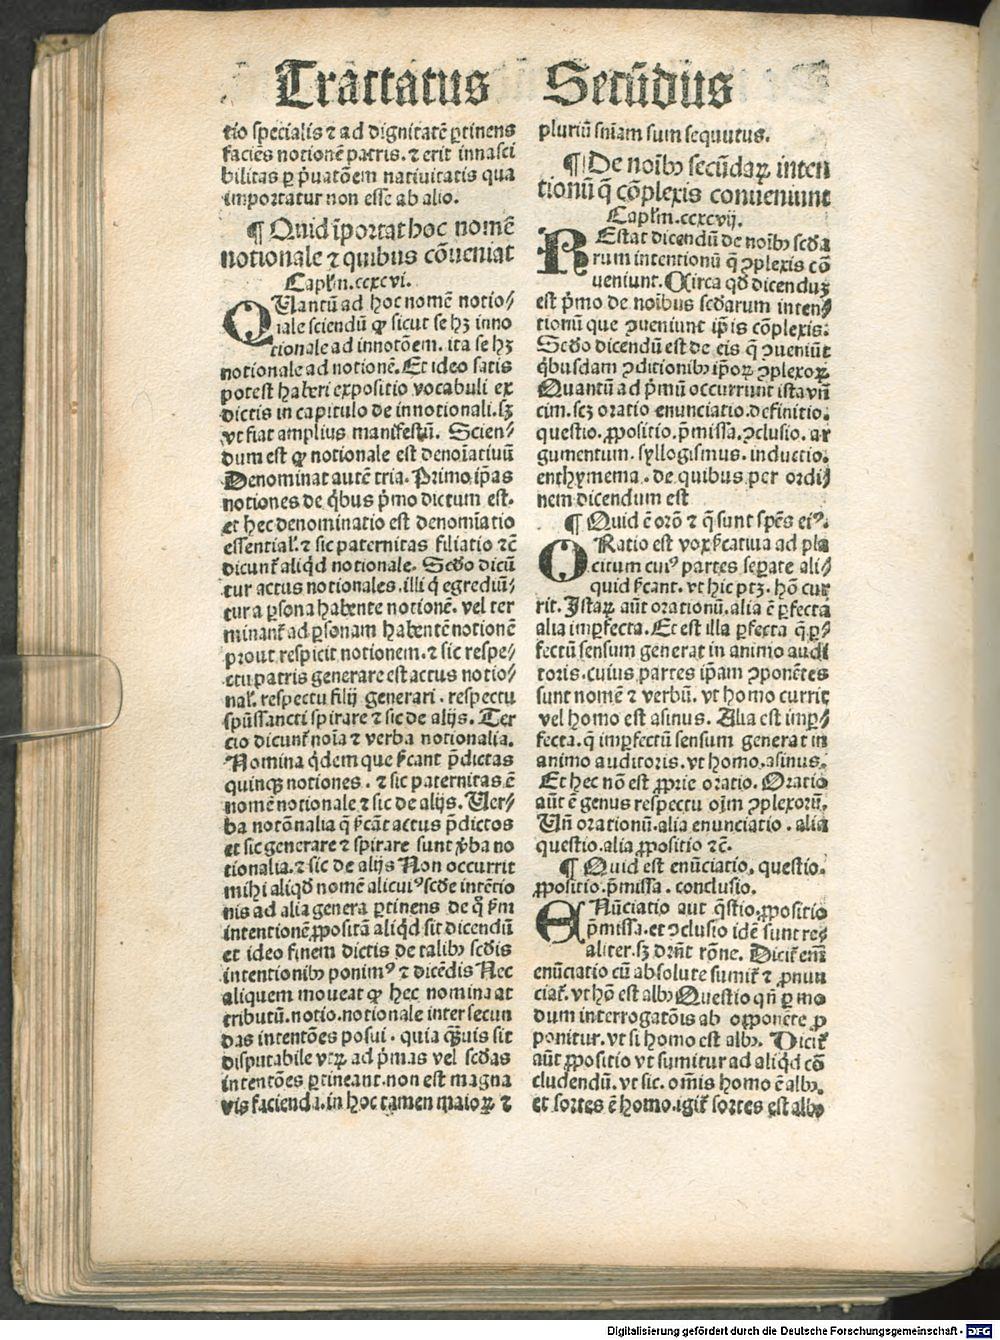 Tractatus Secūdus
tio specialis ⁊ ad dignitatē ꝑtinens
faciēs notionē patris. ⁊ erit innasci
bilitas ꝑ p̄uatōem natiuitatis qua
importatur non esse ab alio.
¶ Quid īportat hoc nomē
notionale ⁊ quibus cōueniat
Capl̄m.ccxcvi.
QUantū ad hoc nomē notio⸗
nale sciendū ꝙ sicut se hꝫ inno
tionale ad innotōem. ita se hꝫ
notionale ad notionē. Et ideo satis
potest haberi expositio vocabuli ex
dictis in capitulo de innotionali. sꝫ
vt fiat amplius manifestū. Scien⸗
dum est ꝙ notionale est denoīatiuū
Denominat autē tria. Primo ip̄as
notiones de q̇bus p̄mo dictum est.
et hec denominatio est denomīatio
essential̓. ⁊ sic paternitas filiatio ⁊c̄
dicunt̉ aliqd̓ notionale. Scd̓o dicū
tur actus notionales. illi q̇ egrediū⸗
tur a ꝑsona habente notionē. vel ter
minant̉ ad ꝑsonam habentē notionē
prout respicit notionem. ⁊ sic respe⸗
ctu patris generare est actus notio⸗
nal̓. respectu filij generari. respectu
spūssancti spirare ⁊ sic de alijs. Ter
cio dicunt̉ noīa ⁊ verba notionalia.
Nomina q̇dem que sc̄ant p̄dictas
quinqꝫ notiones. ⁊ sic paternitas ē
nomē notionale ⁊ sic de alijs. Uer⸗
ba notōnalia q̄ sc̄āt actus p̄dictos
et sic generare ⁊ spirare sunt v̓ba no
tionalia. ⁊ sic de alijs Non occurrit
mihi aliqd̓ nomē alicuiꝰ scd̓e intētio
nis ad alia genera ꝑtinens de q̊ scd̓m
intentionē ꝓpositā aliqd̓ sit dicendū
et ideo finem dictis de talibꝫ scd̓is
intentionibꝫ ponimꝰ ⁊ dicēdis Nec
aliquem moueat ꝙ hec nomina at
tributū. notio. notionale inter secun
das intentōes posui. quia quāuis sit
disputabile vtꝝ ad p̄mas vel scd̓as
intentōes ꝑtineant. non est magna
vis facienda. in hoc tamen maioꝝ ⁊
pluriū sn̄iam sum sequutus.
¶ De noībꝫ secūdaꝝ inten
tionū q̄ cōplexis conueniunt
Capl̄m.ccxcvij.
REstat dicendū de noībꝫ scd̓a
rum intentionū q̄ ꝯplexis cō
ueniunt. Circa qd̓ dicenduꝫ
est p̄mo de noībus scd̓arum inten⸗
tionū que ꝯueniunt ip̄is cōplexis.
Scd̓o dicendū est de eis q̄ ꝯueniūt
q̇busdam ꝯditionibꝫ ip̄oꝝ ꝯplexoꝝ.
Quantū ad p̄mū occurrunt ista vn̄
cim. scꝫ oratio enunciatio. definitio.
questio. ꝓpositio. p̄missa. ꝯclusio. ar
gumentum. syllogismus. inductio.
enthymema. de quibus per ordi⸗
nem dicendum est
¶ Quid ē orō ⁊ q̄ sunt sp̄es eiꝰ.
ORatio est vox sc̄atiua ad pla
citum cuiꝰ partes seꝑate ali⸗
quid sc̄ant. vt hic ptꝫ. hō cur
rit. Istaꝝ aūt orationū. alia ē ꝑfecta
alia imꝑfecta. Et est illa ꝑfecta q̄ ꝑ⸗
fectū sensum generat in animo audi
toris. cuius partes ip̄am ꝯponētes
sunt nomē ⁊ verbū. vt homo currit
vel homo est asinus. Alia est imꝑ⸗
fecta. q̄ imꝑfectū sensum generat in
animo auditoris. vt homo. asinus.
Et hec nō est ꝓprie oratio. Oratio
aūt ē genus respectu oīm ꝯplexorū.
Un̄ orationū. alia enunciatio. alia
questio. alia ꝓpositio ⁊c̄.
¶ Quid est enūciatio. questio.
ꝓpositio. p̄missa. conclusio.
ENūciatio aut q̄stio. ꝓpositio
p̄missa. et ꝯclusio idē sunt re⸗
aliter. sꝫ dr̄nt rōne. Dicit̉ em̄
enūciatio cū absolute sumit̉ ⁊ ꝓnun
ciat̉. vt hō est albꝫ Questio qn̄ ꝑ mo
dum interrogatōis ab opponēte ꝓ
ponitur. vt si homo est albꝫ. Dicit̉
aūt ꝓpositio vt sumitur ad aliqd̓ cō
cludendū. vt sic. om̄is homo ē albꝫ.
et sortes ē homo. igit̉ sortes est albꝫ
Digitalisierung gefördert durch die Deutsche Forschungsgemeinschaft - DFG